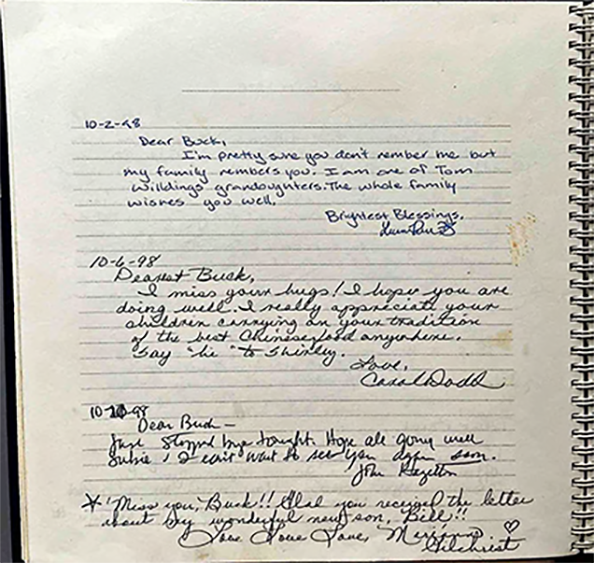 10-2-98
Dear Buck,
I'm pretty sure you don't rember me but
my family rembers you. I am one of Tom
Willdings grandoughters. The whole family
wishes you well.
Brightest Blessings,
10-6-98
Dearest Buck,
I miss your hugs! I hope you are
doing well. I really appreciate your
children carrying on your tradition
of the best Chinese food anywhere.
Say "hi" to Shirley.
Love,
Carol Dodd
98
Dear Buck -
Just stopped bye tonight. Hope all going well
& I can't wait to see you again soon.
John
* Miss you, Buck!! Glad you received the letter
about my wonderful new son, Bill!!
Love Love Love, ♡
Gilchrist